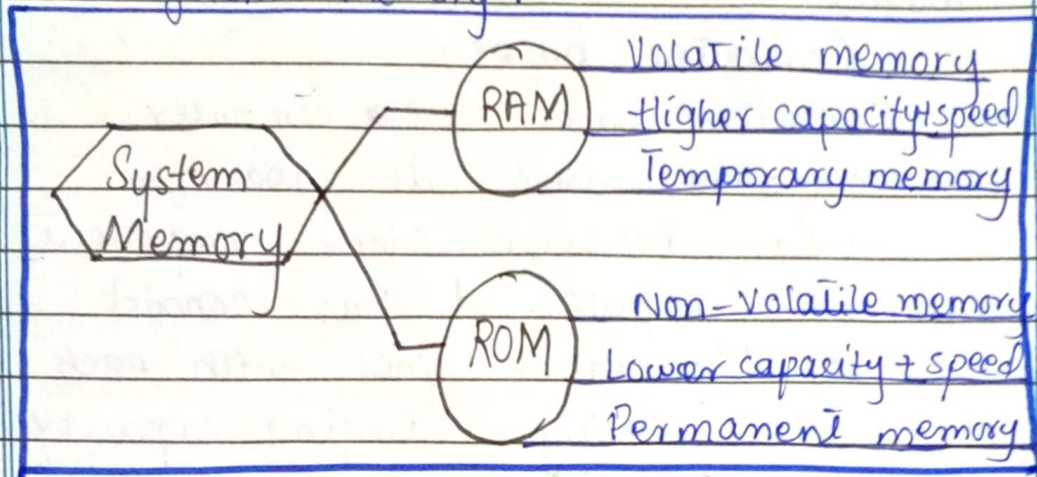 System
Memory
RAM
Volatile memory
Higher capacity+speed
Temporary memory
ROM
Non-Volatile memory
Lower capacity + speed
Permanent memory